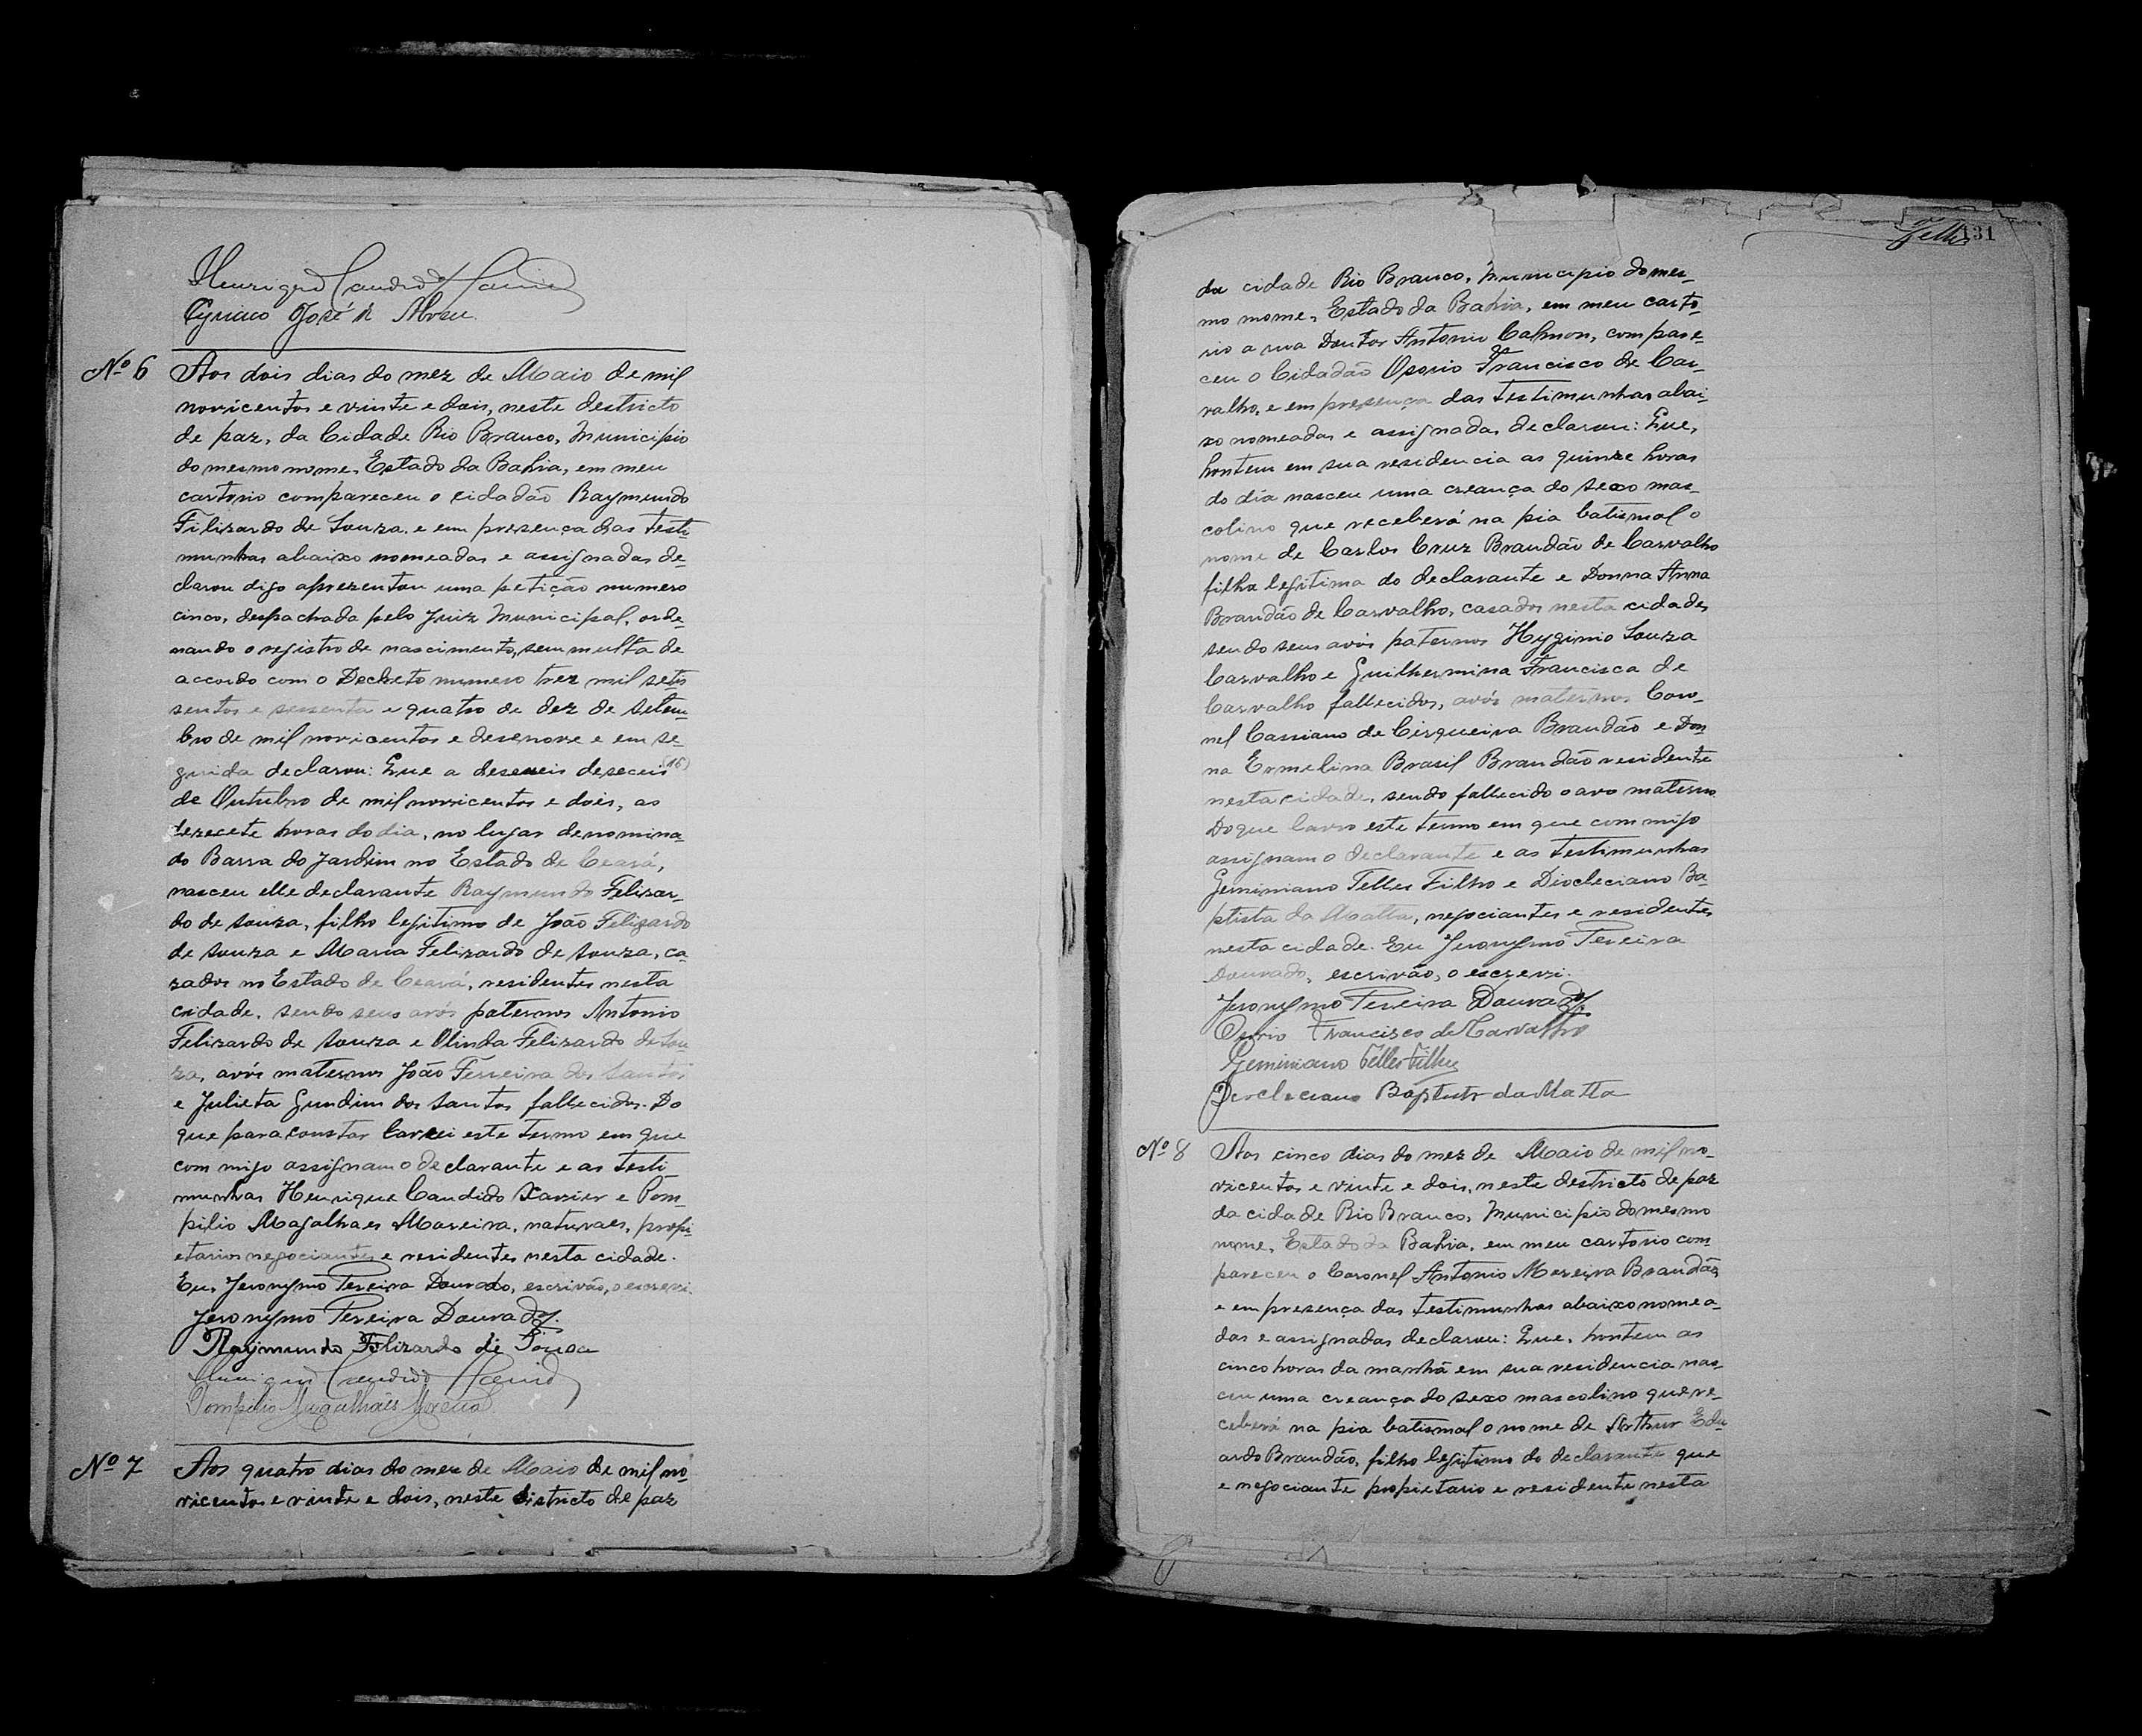 Henrique Candido Xavier
Cyriaco José de Abreu
Nº 6 Aos dois dias do mez de Maio de mil
novicentos e vinte e dois, neste destricto
de paz, da Cidade Rio Branco, Municipio
do mesmo nome, Estado da Bahia, em meu
cartorio compareceu o cidadão Raymundo
Filizardo de Souza, e em presença das testi-
munhas abaixo nomeadas e assignadas de-
clarou digo aprezentou uma petição numero
cinco, despachada pelo Juiz Municipal, orde-
nando o registro de nascimento, sem multa de
accordo com o Decreto numero trez mil sete
sentos e sessenta e quatro de dez de Setem-
bro de mil novicentos e desenove e em se-
guida declarou: Que a deseseis deseceis (16)
de Outubro de mil novicentos e dois, as
dezecete horas do dia, no lugar denomina-
do Barra do Jardim no Estado de Ceará,
nasceu elle declarante Raymundo Felizar-
do de Souza, filho legitimo de João Felizardo
de Souza e Maria Felizardo de Souza, ca-
zados no Estado de Ceará, residentes nesta
cidade, sendo seus avós paternos Antonio
Felizardo de Souza e Olinda Felizardo de Sou-
za, avós maternos João Ferreira dos Santos
e Julieta Gundim dos Santos fallecidos. Do
que para constar lavrei este termo em que
com migo assignam o declarante e as testi-
munhas Henrique Candido Xavier e Pom-
pilio Magalhaes Moreira, naturaes, propi-
etarios negociantes e residentes nesta cidade.
Eu, Jeronymo Pereira Dourado, escrivão, o escrevi.
Jeronymo Pereira Dourado
Raymundo Felizardo de Souza
Henrique Candido Xavier
Pompilio Magalhães Moreira
Nº 7 Aos quatro dias do mez de Maio de mil no-
vicentos e vinte e dois, neste districto de paz
Telles 131
da cidade Rio Branco, Municipio do mes-
mo nome, Estado da Bahia, em meu carto-
rio a rua Doutor Antonio Calmon, compare-
ceu o Cidadão Osorio Francisco de Car-
valho, e em presença das testimunhas abai-
xo nomeadas e assignadas declarou: Que,
hontem em sua residencia as quinze horas
do dia nasceu uma creança do sexo mas-
colino que receberá na pia batismal o
nome de Carlos Cruz Brandão de Carvalho
filho legitima do declarante e Donna Anna
Brandão de Carvalho, casados nesta cidade,
sendo seus avós paternos Hyginio Souza
Carvalho e Guilhermina Francisca de
Carvalho fallecidos, avós maternos Coro-
nel Cassiano de Cirqueira Brandão e Don-
na Ermelina Brasil Brandão residente
nesta cidade, sendo fallecido o avo materno.
Do que lavro este termo em que commigo
assignam o declarante e as testimunhas
Geminiano Telles Filho e Diocleciano Ba-
ptista da Matta, negociantes e residentes
nesta cidade. Eu Jeronymo Pereira
Dourado, escrivão, o escrevi.
Jeronymo Pereira Dourado
Osorio Francisco de Carvalho
Geminiano Telles Filho
Diocleciano Baptista da Matta
Nº 8 Aos cinco dias do mez de Maio de mil no-
vicentos e vinte e dois, neste destricto de paz
da cidade Rio Branco, Municipio do mesmo
nome, Estado da Bahia, em meu cartorio com
pareceu o Coronel Antonio Moreira Brandão,
e em presença das testimunhas abaixo nomea-
das e assignadas declarou: Que, hontem as
cinco horas da manhã em sua residencia nas-
ceu uma creança do sexo mascolino que re-
ceberá na pia batismal o nome de Arthur Edu-
ardo Brandão, filho legitimo do declarante que
e negociante propietario e residente nesta